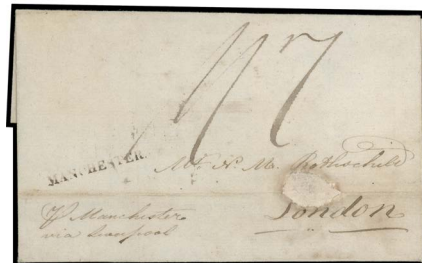 1/7
MANCHESTER.
Mr. N. M. Rothschild
London
Manchester
via Liverpool